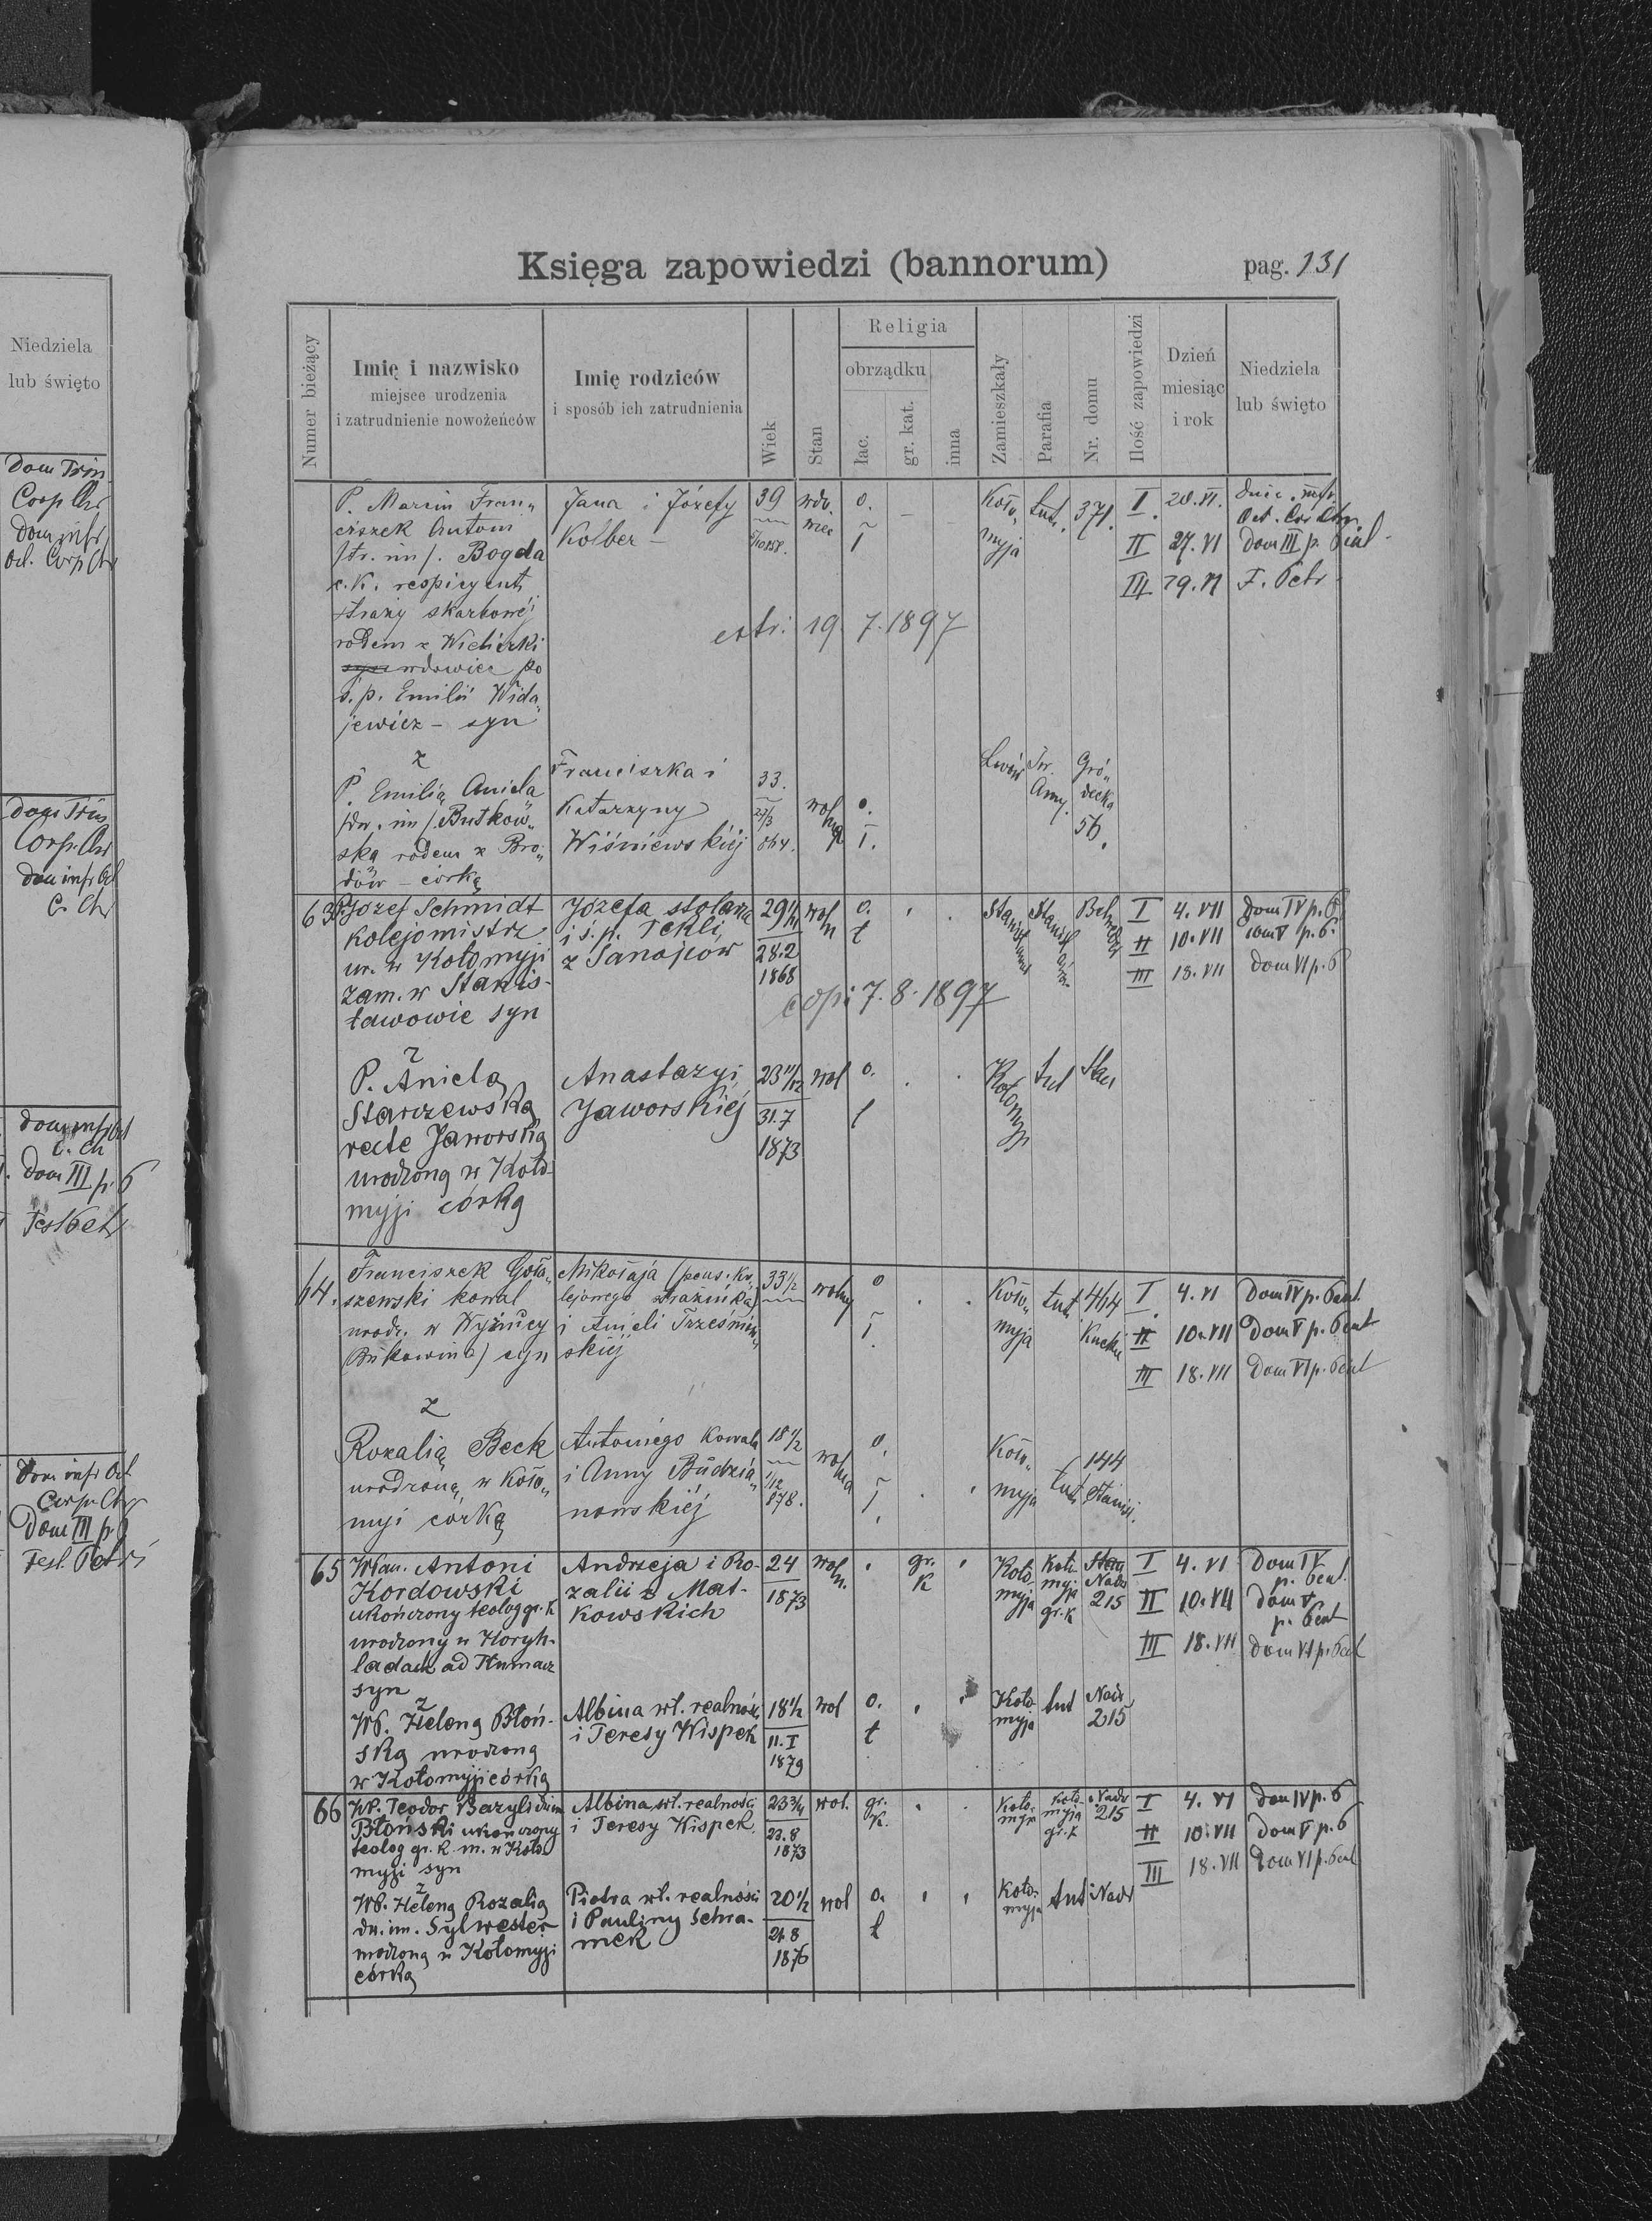 Niedziela
lub święto
Dom Trin
Corp Chr
Dom infr
Oct. Corp Chr
Dom Trin
Corp. Chr
Dom infr Oct
C. Chr
Dom infr Oct
C. Ch
Dom III p. P
Fest Petr
Dom infr Oct
Corp Chr
Dom III p P
Fest. Petri
Księga zapowiedzi (bannorum) pag. 131
Numer bieżący
Imię i nazwisko
miejsce urodzenia
i zatrudnienie nowożeńców
Imię rodziców
i sposób ich zatrudnienia
Wiek
Stan
Religia
obrządku
łac.
gr. kat.
inna
Zamieszkały
Parafia
Nr. domu
Ilość zapowiedzi
Dzień
miesiąc
i rok
Niedziela
lub święto
P. Marcin Fran„
ciszek Antoni
/tr. im/. Bogda
c. k. respicyent
straży skarbowéj
rodem z Wieliczki
wdowiec po
ś. p. Emilii Wida„
jewicz – syn
Jana i Józefy
Kolber –
39
wdo.
wiec
o.
ł
Koło„
myja
tut.
371.
I. 20. VI.
Oct. Cor Chr.
II 27. VI Dom III p. Pent.
III 29. VI F. Petr
extr. 19. 7. 1897
z
P. Emilią Aniela
/dw. im/. Butków„
ską rodem z Bro„
dów – córką
Franciszka i
Katarzyny
Wiśniewskiéj
33.
27/3
864.
wol
na
o.
ł.
Lwów
Św.
Anny.
Gró„
decka
56.
63 P Józef Schmidt
kolejomistrz
ur. w Kołomyji
zam. w Stanis-
ławowie syn
Józefa stolarza
i ś. p. Tekli
z Sanojców
29 1/2
28.2
1868
woln
o.
ł
Stanisławów
Stanisławów
I 4. VII Dom IV p. P
II 10. VII Dom V p. P.
III 18. VII Dom VI p. P
copi 7. 8. 1897
z
P. Anielą
Starzewską
recte Jaworską
urodzoną w Koło-
myji córką
Anastazyi
Jaworskiéj
23 11/12
31.7
1873
wol
o.
ł
Kołomyja
tut
Stan
64. Franciszek Goła„
szewski kowal
urodz. w Wyżnicy
(Bukowina) syn
Mikołaja (pens. ko„
lejowego strażnika)
i Anieli Trześniow„
skiéj
33 1/2
wolny
o
ł.
Koło„
myja
tut
464
I. 4. VI Dom IV p. Pent.
II 10. VII Dom V p. Pent
III 18. VII Dom VI p. Pent
z
Rozalią Beck
urodzoną w Koło„
myi córką
Antoniego kowala
i Anny Budzia„
nowskiéj
18 1/2
1/12
878.
wol
na
o.
ł
Koło„
myja
tut
144
Stanisł.
65 WPan. Antoni
Kordowski
ukończony teolog gr. k
urodzony w Horyh-
ladach ad Tłumacz
syn
Andrzeja i Ro-
zalii z Mat-
kowskich
24
1873
woln.
gr.
k
Koło-
myja
Koło-
myja
gr. k
Stan
Nadw
215
I 4. VI Dom IV
p. Pent.
II 10. VII Dom V
p. Pent
III 18. VII Dom VI p. Pent
z
WP. Heleną Błoń-
ską urodzoną
w Kołomyji córką
Albina wł. realności
i Teresy Wispek
18 1/2
11. I
1879
wol
o.
ł
Koło
myja
tut
Nadw
215
66 WP. Teodor Bazyli dwim
Błoński ukończony
teolog gr. k. m. w Koło-
myji syn
Albina wł. realności
i Teresy Wispek
23 3/4
23. 8
1873
wol.
gr.
k.
Koło-
myja
Koło-
myja
gr. k
Nadw
215
I 4. VI Dom IV p. P
II 10. VII Dom V p. P
III 18. VII Dom VI p. Pent
z
WP. Heleną Rozalią
dw. im. Sylwester
urodzoną w Kołomyji
córką
Piotra wł. realności
i Pauliny Schra-
mek
20 1/2
21. 8
1876
wol
o.
ł
Koło-
myja
tut
Nadw